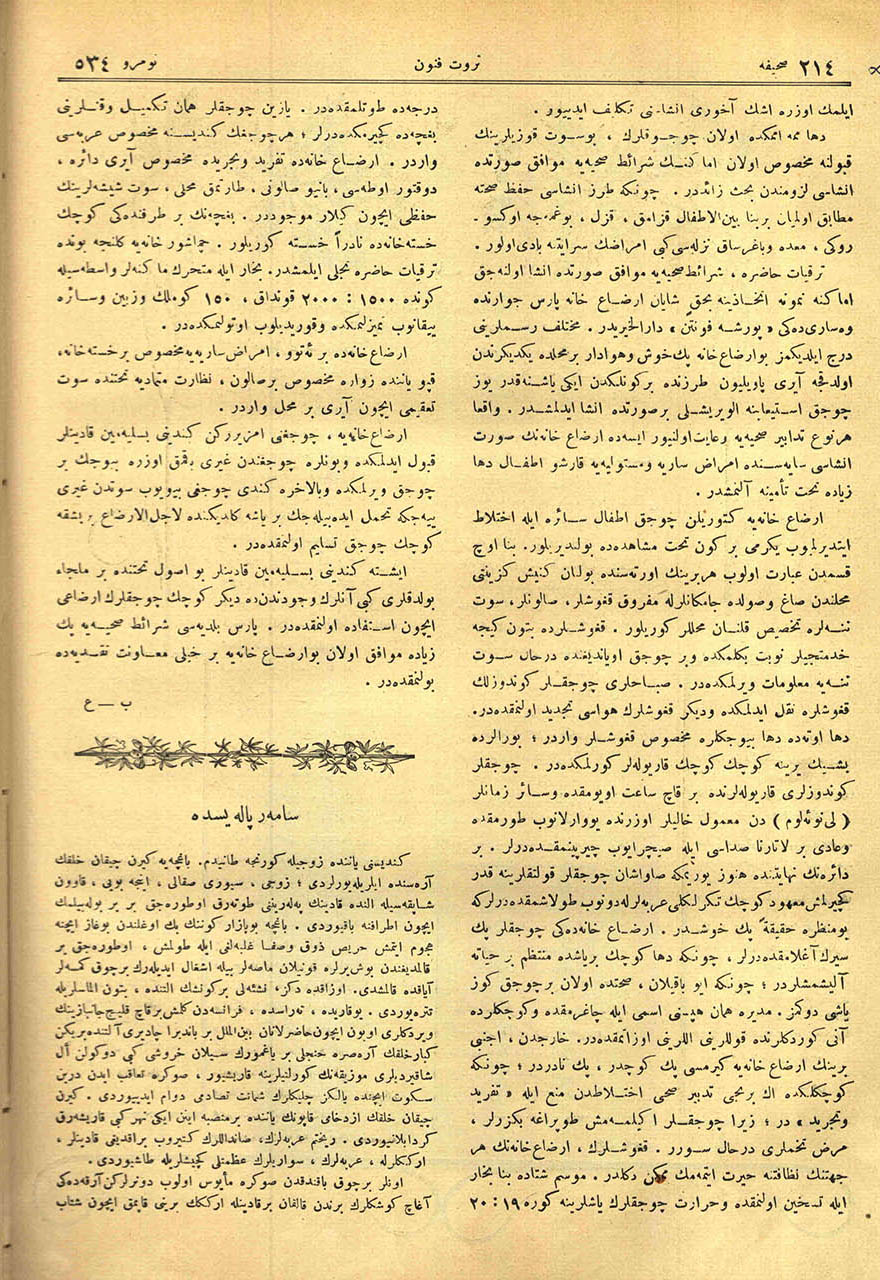 صحیفه ٢١٤
ثروت فنون
نومرو ٥٣٤
ایلمك اوزره اشك آخوری انشاسنی تكلف ایدییور .
دها ممه امكده اولان چوجوقلرك ، بوسوت قوزیلرینك
قبولنه مخصوص اولان اماكنك شرائط صحیه‌یه موافق صورتده
انشاسی لزومندن بحث زائددر . چونكه طرز انشاسی حفظ صحته
مطابق اولمیان بربنا بین‌الاطفال قزامق ، قزل ، بوغمه‌جه اوكسو-
روكی ، معده وباغرساق نزله‌سی كبی امراضك سرایتنه بادی اولور .
ترقیات حاضره ، شرائط صحیه‌یه موافق صورتده انشا اولنه‌جق
اماكنه نمونه اتخاذینه بحق شایان ارضاع خانه پارس جوارنده
وه‌ساری‌ده‌كی « پورشه فونتن » دارالخیریدر . مختلف رسملرینی
درج ایلدیكمز بوارضاع‌خانه پك‌خوش وهوادار برمحلده یكدیكرندن
اولدقجه آیری پاویلیون طرزنده بركونلكدن ایكی یاشنه‌قدر یوز
چوجق استیعابنه الویریشلی برصورتده انشا ایدلمشدر . واقعا
هرنوع تدابیر صحیه‌یه رعایت اولنیور ایسه‌ده ارضاع خانه‌نك صورت
انشاسی سایه‌سنده امراض ساریه ومستولیه‌یه قارشو اطفال دها
زیاده تحت تأمینه آلنمشدر .
ارضاع خانه‌یه كتوریلن چوجق اطفال سائره ایله اختلاط
ایتدیرلمیوب یكرمی بر كون تحت مشاهده‌ده بولندیریلور. بنا اوچ
قسمدن عبارت اولوب هربرینك اورته‌سنده بولنان كنیش كزینتی
محلندن صاغ وصولده جامكانلرله مفروق قغوشلر، صالونلر، سوت
ننه‌لره تخصیص قلنان محللر كوریلور . قغوشلرده بتون كیجه
خدمتجیلر نوبت بكلمكده وبر چوجق اویاندیغنده درحال سوت
ننه‌یه معلومات ویرلمكده‌در . صباحلری چوجقلر كوندوزلك
قغوشلره نقل ایدلمكده ودیكر قغوشلرك هواسی تجدید اولنمقده‌در.
دها اوته‌ده دها بیوجكلره مخصوص قغوشلر واردر ؛ بورالرده
بشیك یرینه كوچك كوچك قاریوله‌لر كورلمكده‌در . چوجقلر
كوندوزلری قاریوله‌لرنده بر قاچ ساعت اویومقده وسائر زمانلر
( لی‌نوئه‌لوم ) دن معمول خالیلر اوزرنده یووارلانوب طورمقده
وعادی بر لاتارنا صداسی ایله صیچرایوب چیرپینمقده‌درلر . بر
دائره‌نك نهایتنده هنوز یوریمكه صاواشان چوجقلر قولتقلرینه قدر
كچیرلمش معهود كوچك تكرلكلی عربه‌لرله دونوب طولاشمقده‌درلركه
بومنظره حقیقةً پك خوشدر . ارضاع خانه‌ده‌كی چوجقلر پك
سیرك آغلامقده‌درلر ، چونكه دها كوچك یرباشده منتظم بر حیاته
آلیشمشلردر ؛ چونكه ایو باقیلان ، صحتده اولان برچوجق كوز
یاشی دوكمز . مدیره همان هپسنی اسمی ایله چاغرمقده وكوجكلرده
آنی كوردكلرنده قوللرینی اللرینی اوزاتمقده‌در. خارجدن ، اجنبی
برینك ارضاع خانه‌یه كیرمسی پك كوجدر ، پك نادردر ؛ چونكه
كوچكلكده اك برنجی تدبیر صحی اختلاطدن منع ایله « تفرید
وتجرید » در ؛ زیرا چوجقلر ایكیلمه‌مش طوپراغه بكزرلر ،
مرض تخملری درحال سورر . قغوشلرك ، ارضاع‌خانه‌نك هر
جهتنك نظافتنه حیرت ایتمه‌مك ممكن دكلدر. موسم شتاده بنا بخار
ایله تسخین اولنمقده وحرارت چوجقلرك یاشلرینه كوره ١٩ : ٢٠
درجه‌ده طوتلمقده‌در . یازین چوجقلر همان تكمیل وقتلرینی
بغچه‌ده كچیرمكده‌درلر ؛ هرچوجغك كندیسنه مخصوص عربه‌سی
واردر . ارضاع خانه‌ده تفرید وتجریده مخصوص آیری دائره ،
دوقتور اوطه‌سی ، بانیو صالونی ، طارتمق محلی ، سوت شیشه‌لرینك
حفظی ایچون كیلار موجوددر . بغچه‌نك بر طرفنده‌كی كوچك
خسته‌خانه‌ده نادراً خسته كوریلور . چماشور خانه‌یه كلنجه بونده
ترقیات حاضره تجلی ایلمشدر. بخار ایله متحرك ماكنه‌لر واسطه‌سیله
كونده ١٥٠٠ : ٢٠٠٠ قونداق ، ١٥٠ كوملك وزیبین وسائره
ییقانوب تمیزلنمكده وقوریدیلوب اوتولنمكده‌در.
ارضاع‌خانه‌ده بر ئه‌توو ، امراض ساریه‌یه مخصوص برخسته‌خانه،
قپو یاننده زواره مخصوص برصالون ، نظارت متمادیه تحتنده سوت
تعقیمی ایچون آیری بر محل واردر .
ارضاع‌خانه‌یه ، چوجغنی امزیرركن كندینی بسلیه‌مین قادینلر
قبول ایدلمكده وبونلره چوجغندن غیری باقمق اوزره بیوجك بر
چوجق ویرلمكده وبالاخره كندی چوجغی بیویوب سوتدن غیری
ییه‌جكه تحمل ایده‌بیله‌جك بر یاشه كلدیكنده لاجل‌الارضاع بریشقه
كوچك چوجق تسلیم اولنمقده‌در .
ایشته كندینی بسلیه‌مین قادینلر بو اصول تحتنده بر ملجاء
بولدقلری كبی آنلرك وجودندن‌ده دیكر كوچك چوجقلرك ارضاعی
ایچون استفاده اولنمقده‌در . پارس بلدیه‌سی شرائط صحیه‌یه پك
زیاده موافق اولان بوارضاع خانه‌یه بر خیلی معاونت نقدیه‌ده
بولنمقده‌در .
ب — ع
سامه‌ر پاله‌یسده
كندیسنی یاننده زوجیله كورنجه طانیدم. باغچه‌یه كیرن چیقان خلقك
آره‌سنده ایلریله‌یورلردی ؛ زوجی ، سیوری صقاللی ، اینجه بویی ، قاوون
شاپقه‌سیله النده قادینك په‌له‌رینی طوته‌رق اوطوره‌جق بر یر بوله‌بیلمك
ایچون اطرافنه باقیوردی . باغچه بوبازار كوننك پك اوغلندن بوغاز ایچنه
هجوم ایتمش حریص ذوق وصفا غلبه‌لغی ایله طولمش ، اوطوره‌جق یر
قالمدیغندن بوش‌یرلره قونیلان ماصه‌لر بیله اشغال ایدیله‌رك برچوق كمسه‌لر
آیاقده قالمشدی. اوزاقده دكز، نشئه‌لی بركونشك التنده ، بتون الماسلریله
تتره‌یوردی . یوقاریده ، ته‌راسده ، فرانسه‌دن كلمش برقاچ قلیج‌جانبازینك
ویردكلری اویون ایچون حاضرلانان بین‌الملل بر باندیرا چادیری آلتنده بریكن
كبار خلقك آره‌صره خنجلی بر یاغمورك سیلان خروشی كبی دوكولن آل
شاقیردیلری موزیقه‌نك كورلتیلرینه قاریشیور ، صوكره تعاقب ایدن درین
سكوت ایچنده یالكز چلیكلرك شماتت تصادمی دوام ایدییوردی . كیرن
چیقان خلقك ازدحامی قاپونك یاننده بر منصبه اینن ایكی نهر كبی قاریشه‌رق
كردابلانیوردی . ریختم عربه‌لرك، صانداللرك كتیروب براقدیغی قادینلر ،
ارككلرله ، عربه‌لرك ، سواریلرك عظمتلی كچیشلریله طاشیوردی .
اونلر برچوق باقندقدن صوكره مأیوس اولوب دونرلركن آرقه‌ده‌كی
آغاچ كوشكلرك برندن قالقان برقادینله ارككك یرینی قاپمق ایچون شتاب